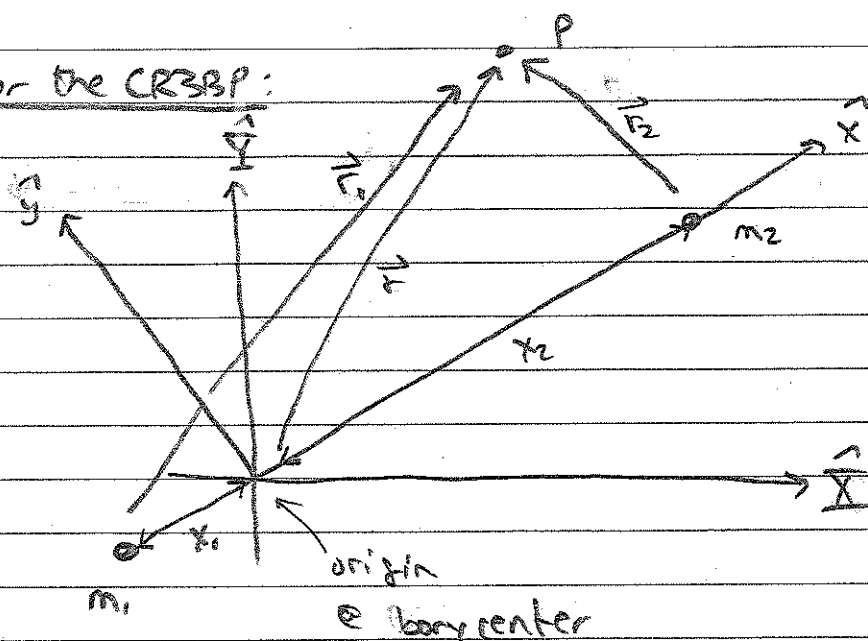 or the CR3BP:
P
Ŷ
x̂
ŷ
r⃗₁
r⃗₂
r⃗
m₂
x₂
X̂
x₁
m₁
origin
@ barycenter